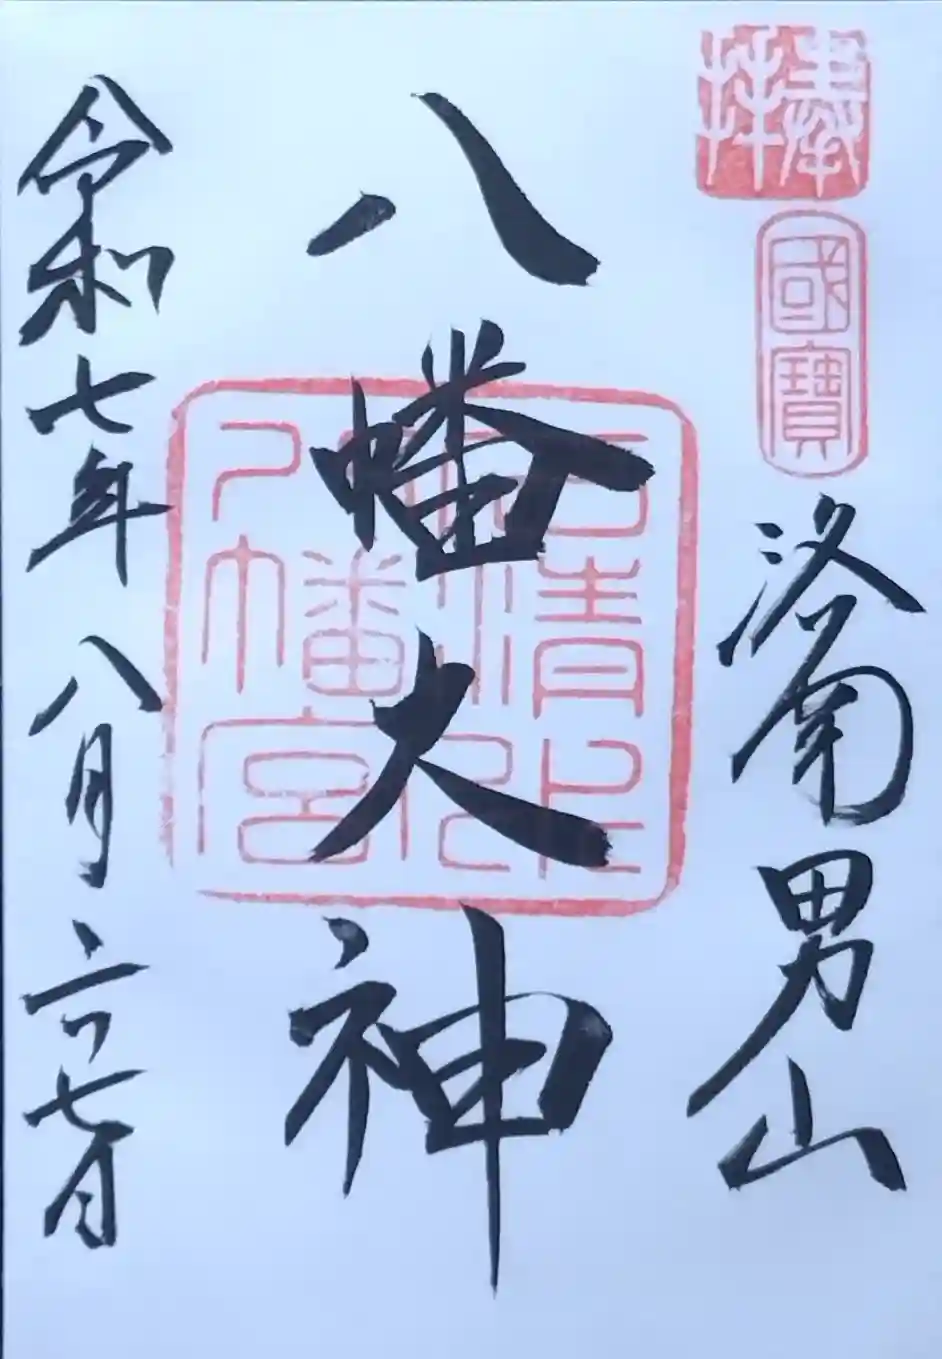 奉拝
國寶
洛南男山
八幡大神
石清水八幡宮
令和七年八月二十七日